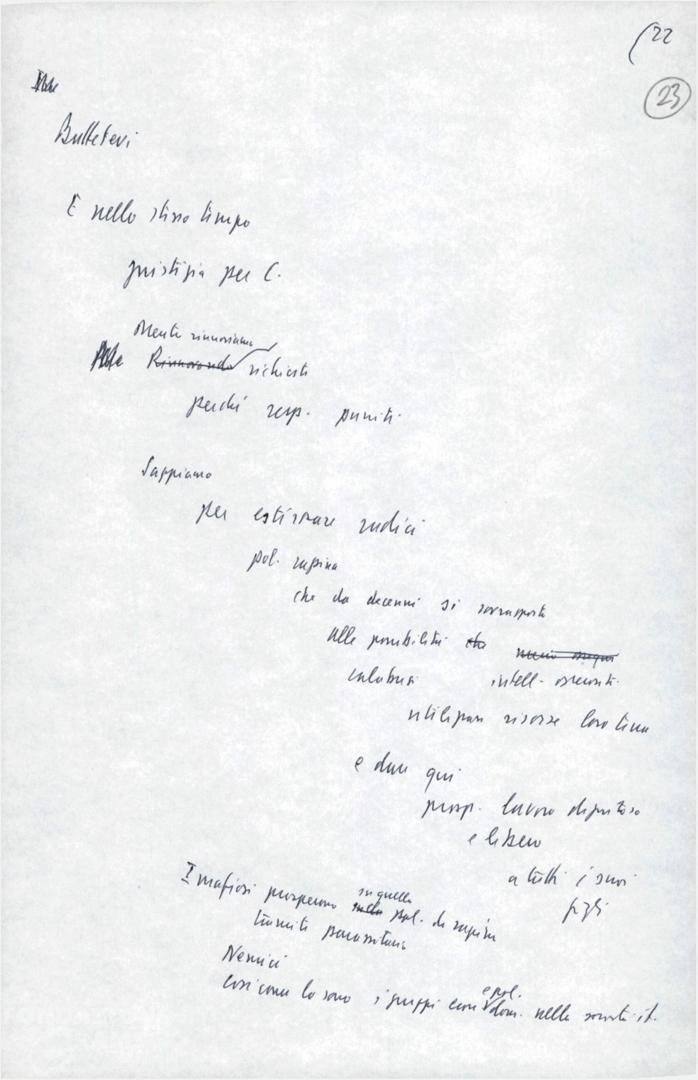 22
23
Battetevi
E nello stesso tempo
giustizia per C.
Mentre rinnoviamo
Rinnovando richiesta
perché resp. puniti
Sappiamo
per estirpare radici
pol. rapina
che da decenni si sovrapposta
alle possibilità che
calabresi intell. onesti
utilizzare risorse loro terra
e dare qui
prosp. lavoro dignitoso
e libero
a tutti i suoi
figli
I mafiosi prosperano in quella
pol. di rapina
tramite parassitaria
Nemici
Così come lo sono i gruppi econ. e pol.
dom. nella società it.